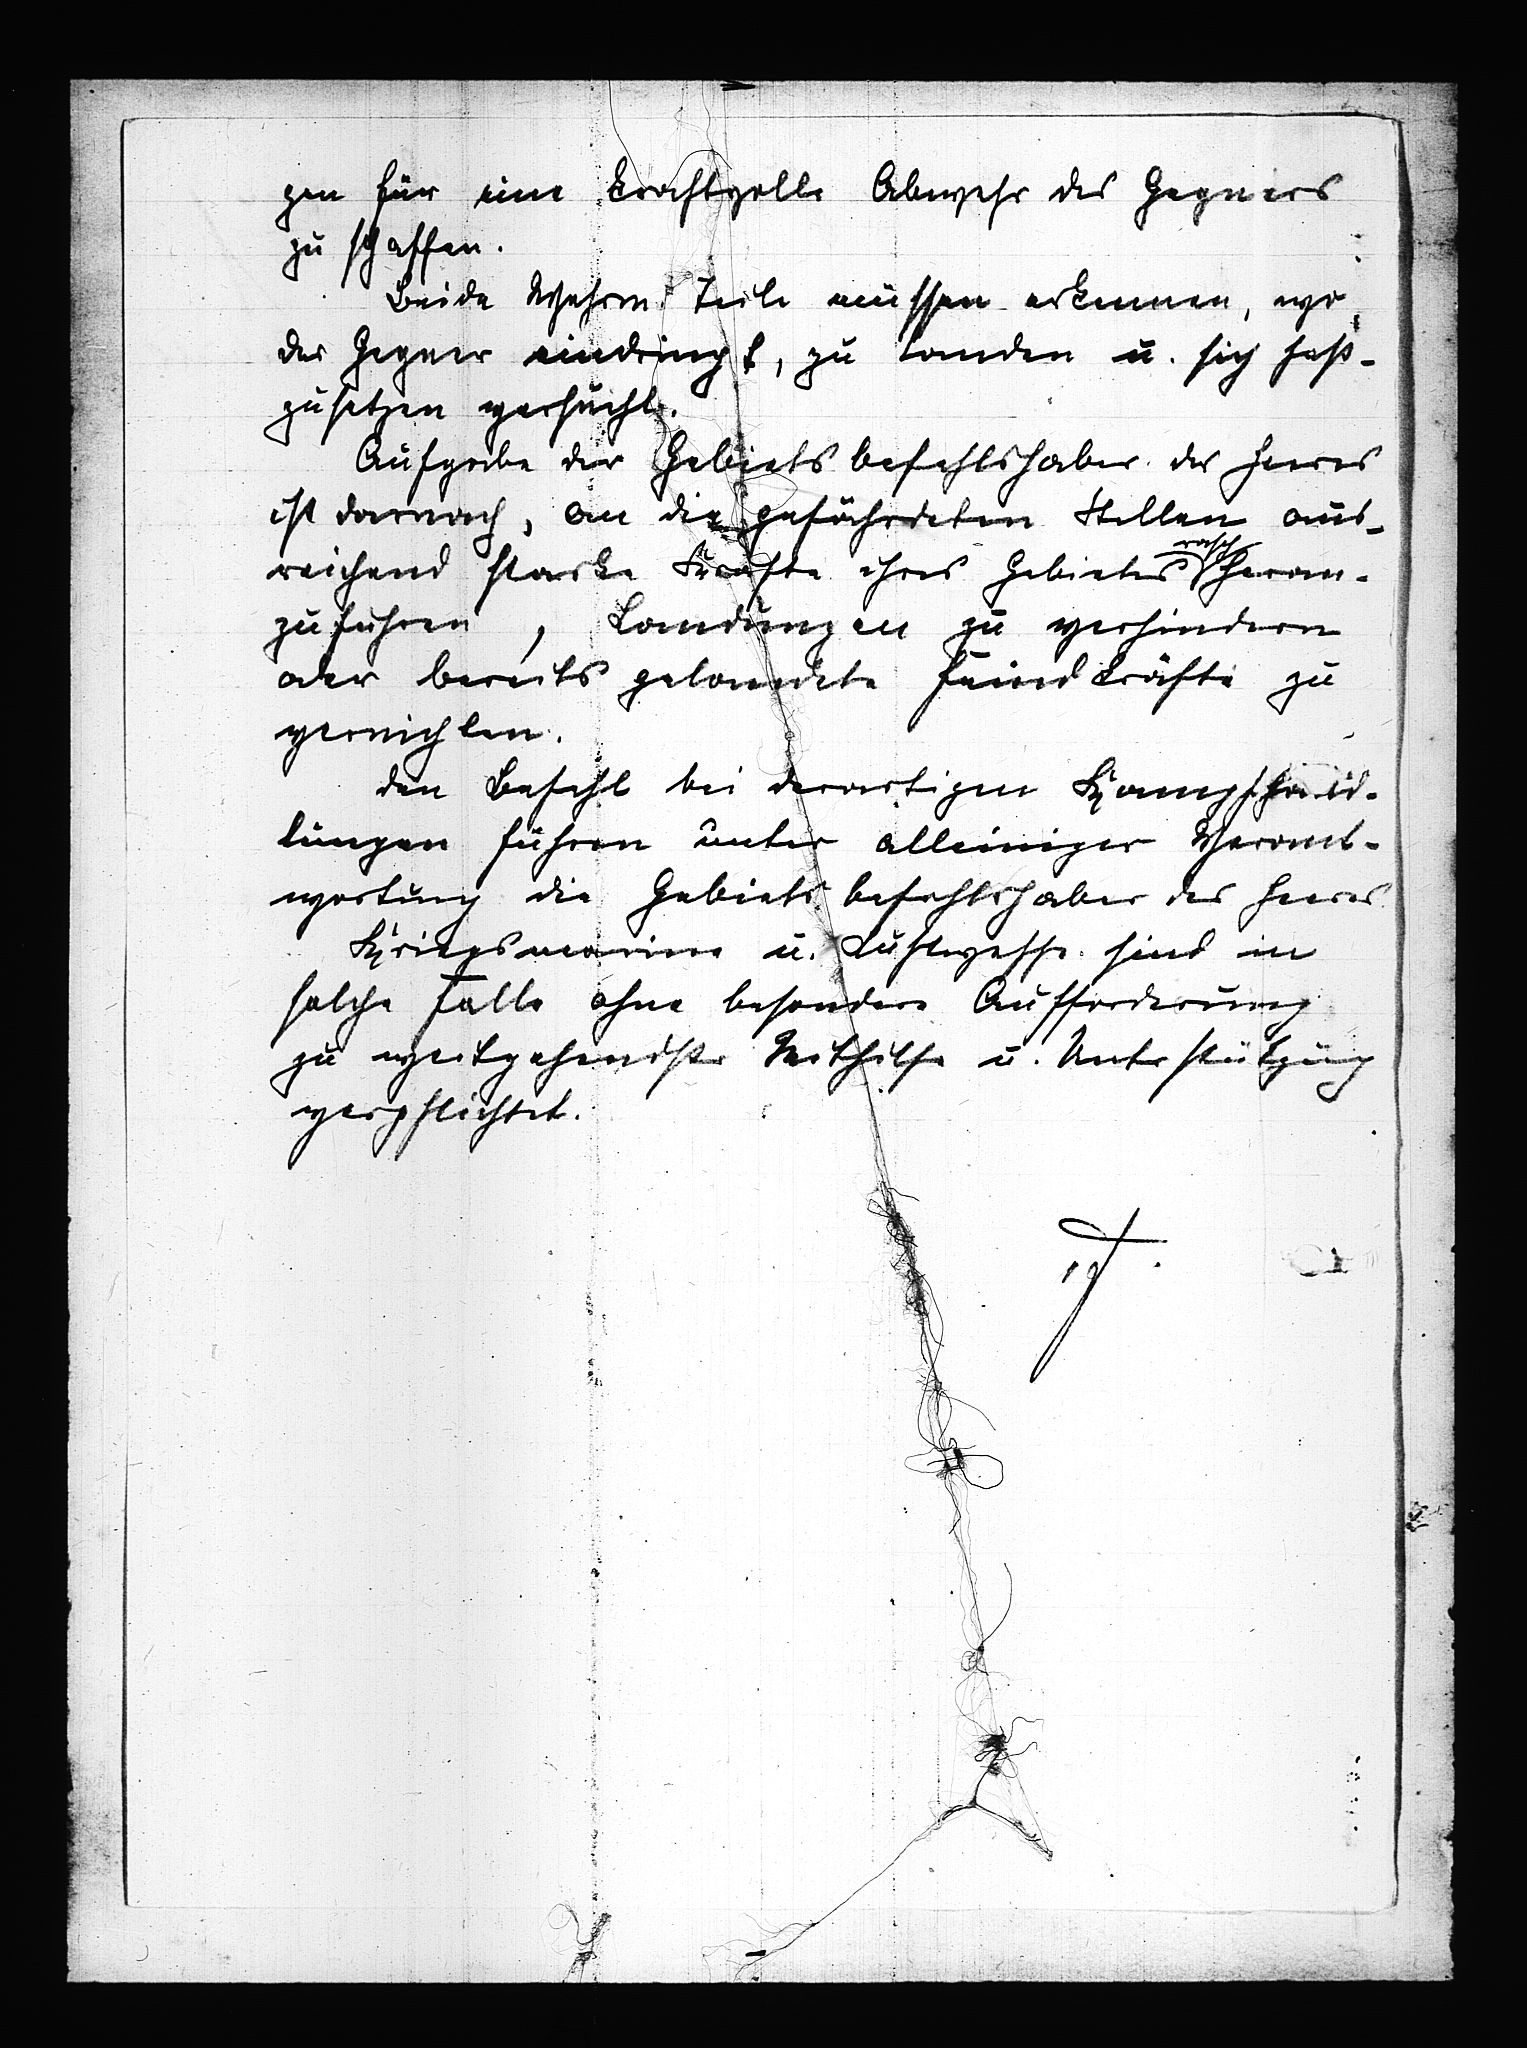 gen für eine kraftvolle Abwehr des Gegners
zu schaffen.
Beide Wehrm. Teile müssen erkennen, wo
der Gegner eindringt, zu landen u. sich fest-
zusetzen versucht.
Aufgabe der Gebietsbefehlshaber des Heeres
ist darnach, an die gefährdeten Stellen aus-
reichend starke Kräfte ihres Gebietes rasch heran-
zuführen, Landungen zu verhindern
oder bereits gelandete Feindkräfte zu
vernichten.
Den Befehl bei derartigen Kampfhand-
lungen führen unter alleiniger Verant-
wortung die Gebietsbefehlshaber des Heeres
Kriegsmarine u. Luftwaffe sind in
solche Falle ohne besondere Aufforderung
zu weitgehendster Mithilfe u. Unterstützung
verpflichtet.